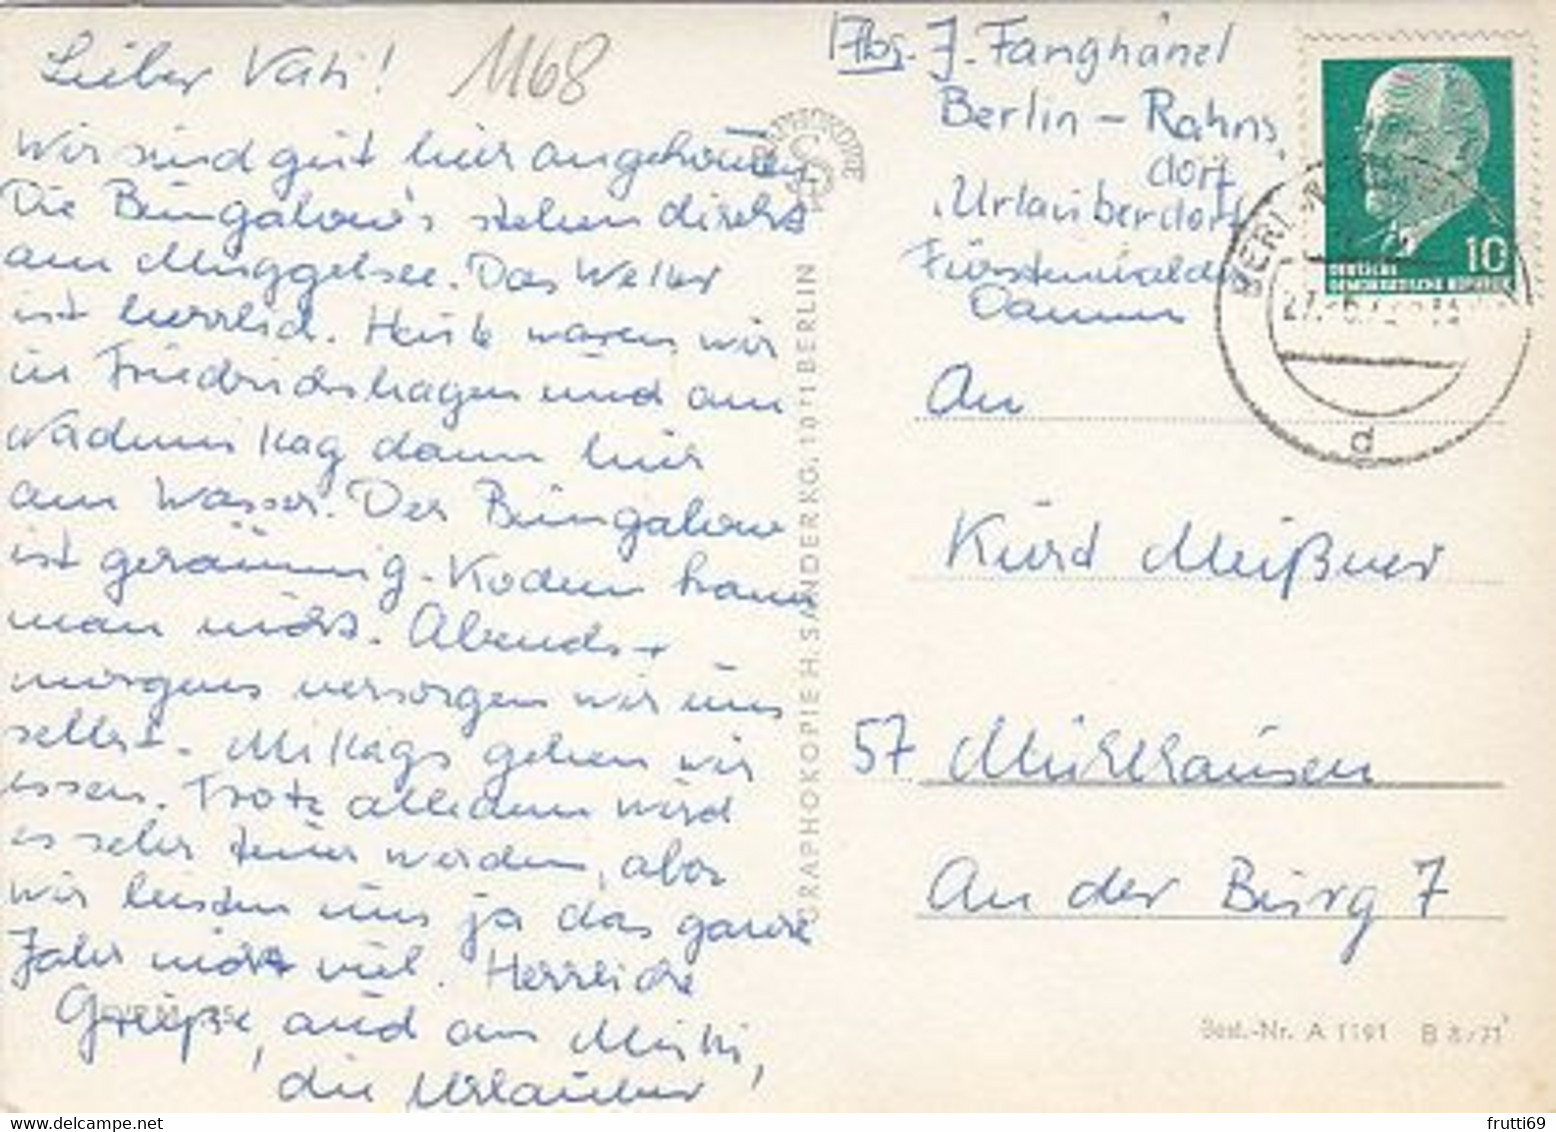 Lieber Vati!
1168
Wir sind gut hier angekommen.
Die Bungalow's stehen direkt
am Müggelsee. Das Wetter
ist herrlich. Heute waren wir
in Friedrichshagen und am
Nachmittag dann hier
am Wasser. Der Bungalow
ist geräumig. Kochen kann
man nicht. Abends +
morgens versorgen wir uns
selbst. Mittags gehen wir
essen. Trotz alledem wird
es sehr teuer werden, aber
wir leisten uns ja das ganze
Jahr nicht viel. Herzliche
Grüße, auch an Mutti,
die Urlauber
GRAPHOKOPIE H. SANDER KG, 1071 BERLIN
Abs. J. Fanghänel
Berlin - Rahns
dorf
Urlauberdorf
Fürstenwalder
Damm
10
DEUTSCHE
DEMOKRATISCHE REPUBLIK
BERLIN
d
An
Kurt Meißner
57 Mühlhausen
An der Burg 7
Best.-Nr. A 1191 B 8/71
frutti69